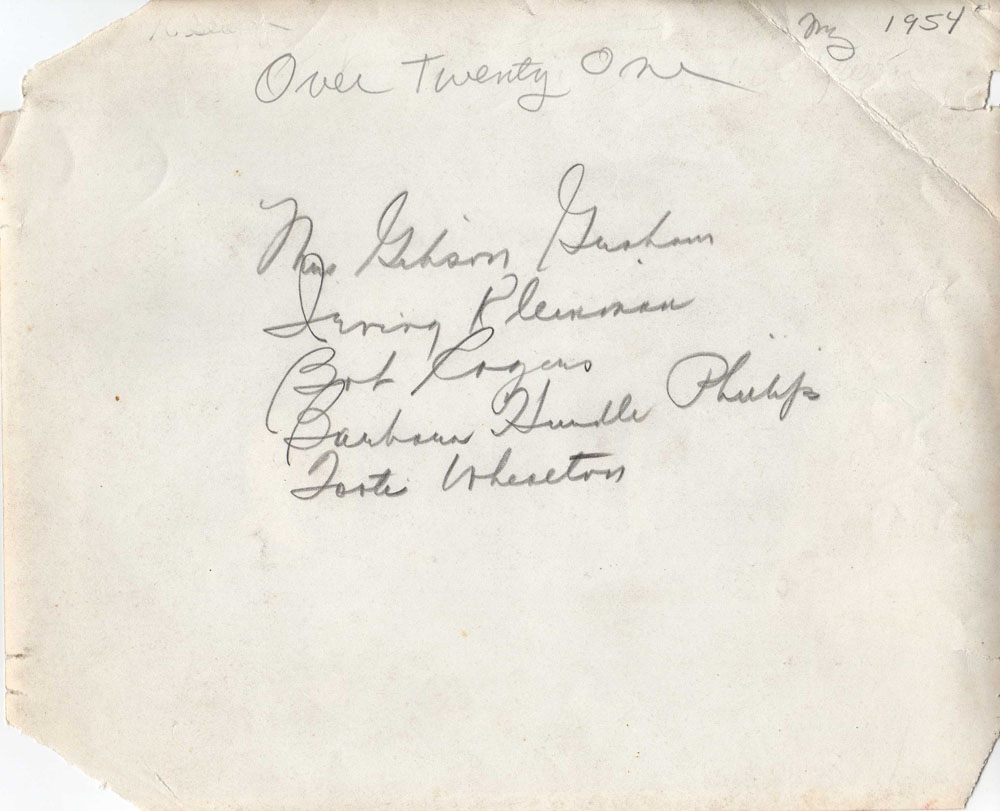 My 1954
Over Twenty One
Mrs Gibson Graham
Irving Kleinman
Bob Rogers
Barbara Hundle Phillips
Foote Wheeton